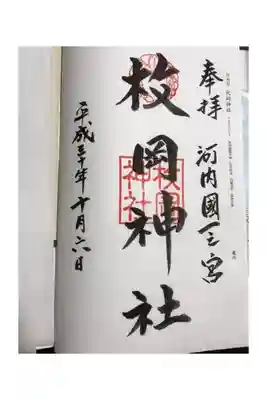 奉拝 河内國一之宮
枚岡神社
平成三十年十月六日